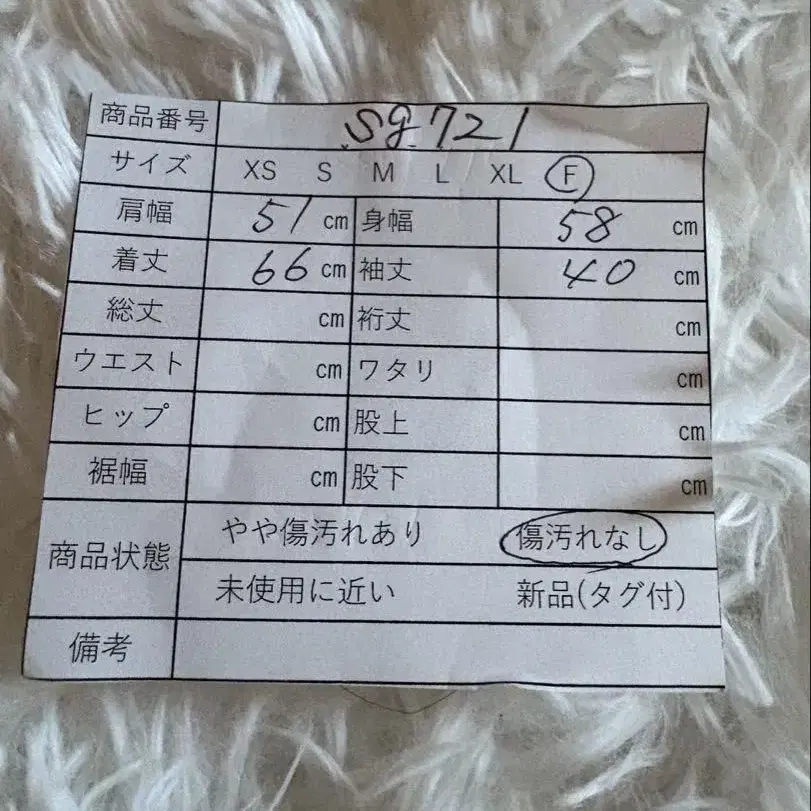 商品番号 sg.721
サイズ XS S M L XL F
肩幅 51 cm 身幅 58 cm
着丈 66 cm 袖丈 40 cm
総丈 cm 裄丈 cm
ウエスト cm ワタリ cm
ヒップ cm 股上 cm
裾幅 cm 股下 cm
商品状態 やや傷汚れあり 傷汚れなし
未使用に近い 新品(タグ付)
備考